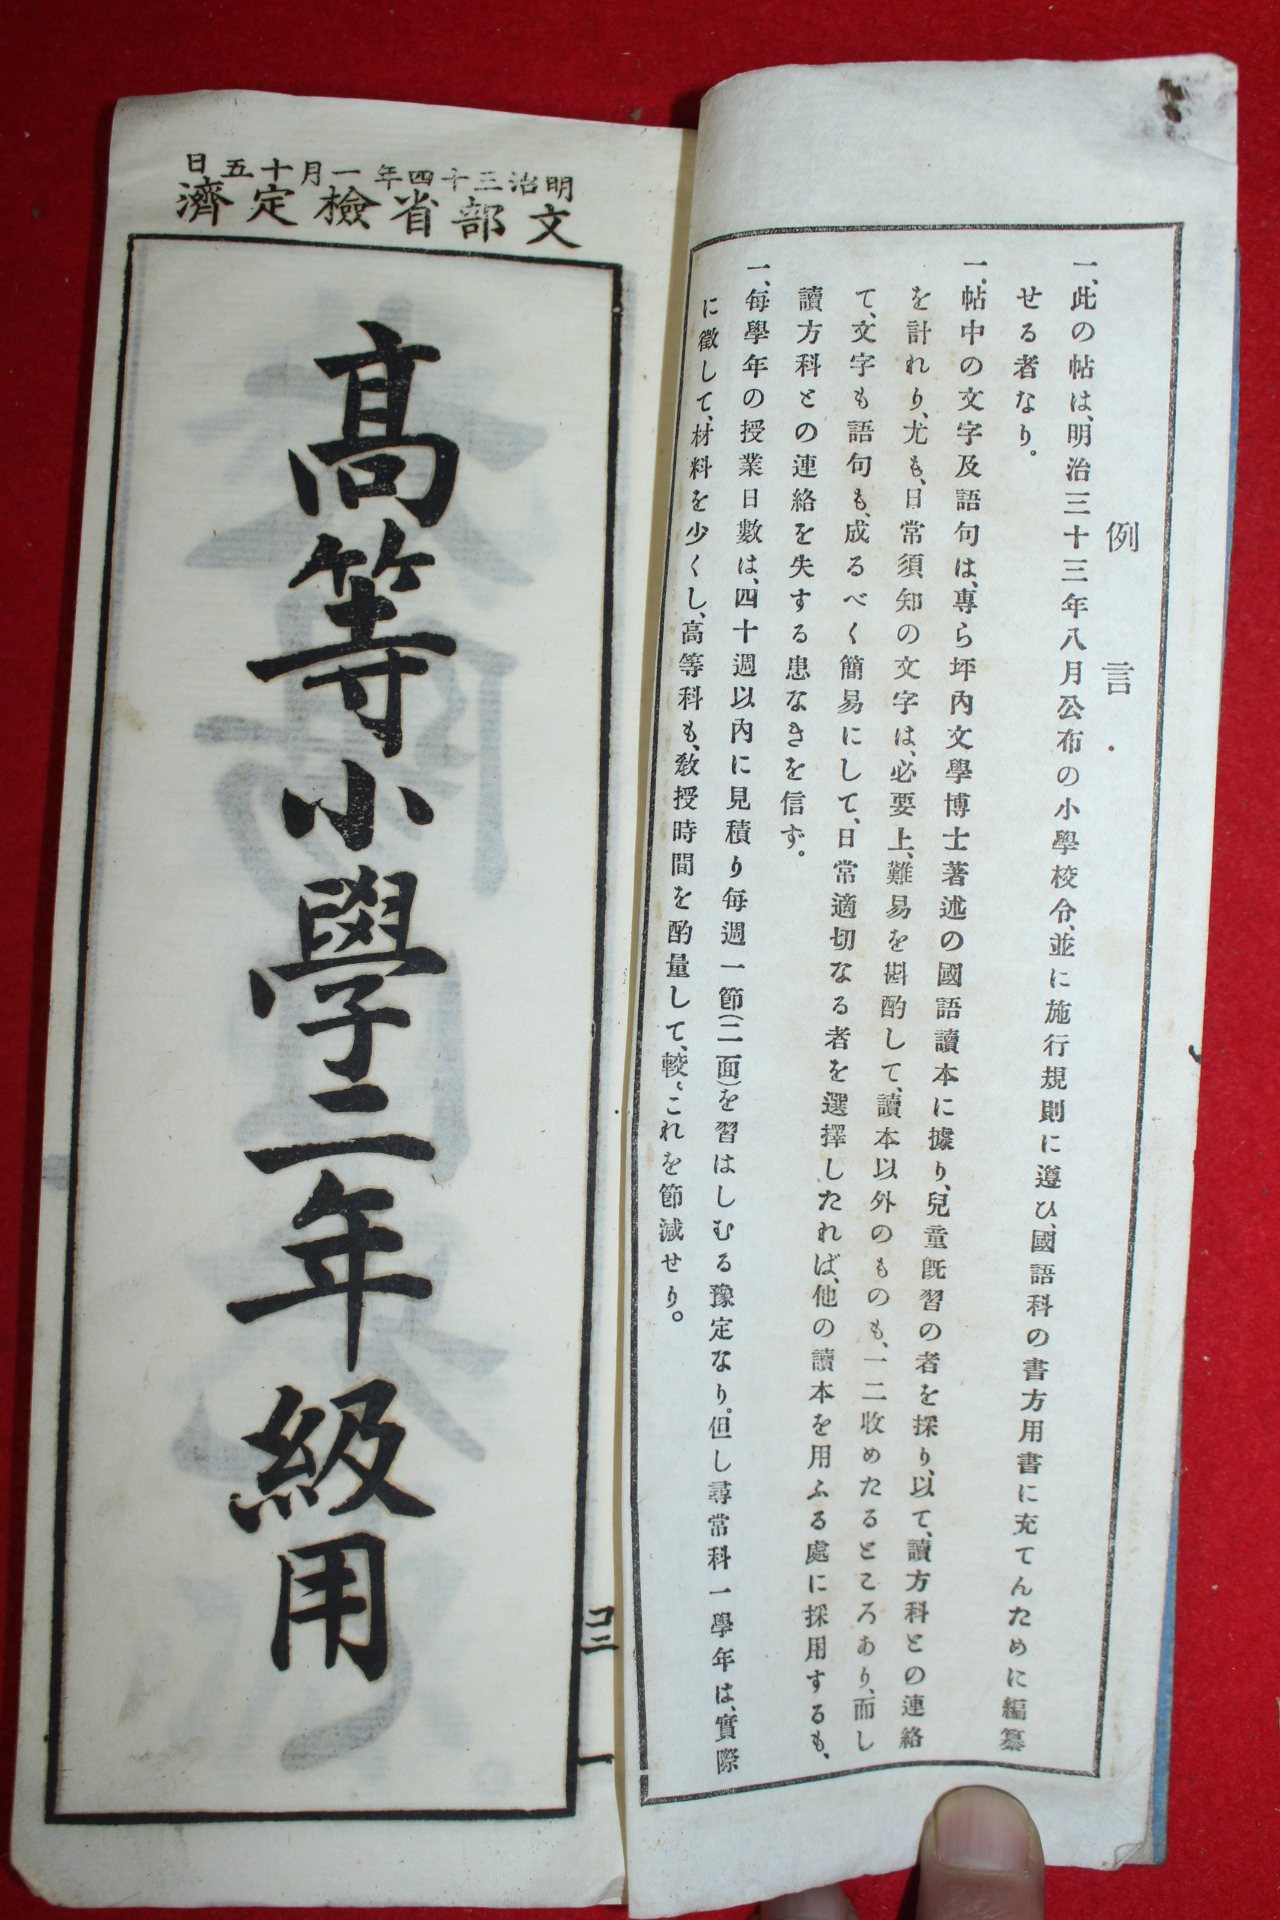 例言
一、此の帖は、明治三十三年八月公布の小學校令、並に施行規則に遵ひ、國語科の書方用書に充てんために編纂
せる者なり。
一、帖中の文字及語句は、專ら坪內文學博士著述の國語讀本に據り、兒童既習の者を採り、以て、讀方科との連絡
を計れり、尤も、日常須知の文字は、必要上、難易を斟酌して、讀本以外のものも、一二收めたるところあり、而し
て、文字も語句も、成るべく簡易にして、日常適切なる者を選擇したれば、他の讀本を用ふる處に採用するも、
讀方科との連絡を失する患なきを信ず。
一、每學年の授業日數は、四十週以內に見積り每週一節(二面)を習はしむる豫定なり。但し尋常科一學年は、實際
に徵して、材料を少くし、高等科も、敎授時間を酌量して、較〻これを節減せり。
明治三十四年一月十五日
文部省檢定濟
高等小學二年級用
コ三
一